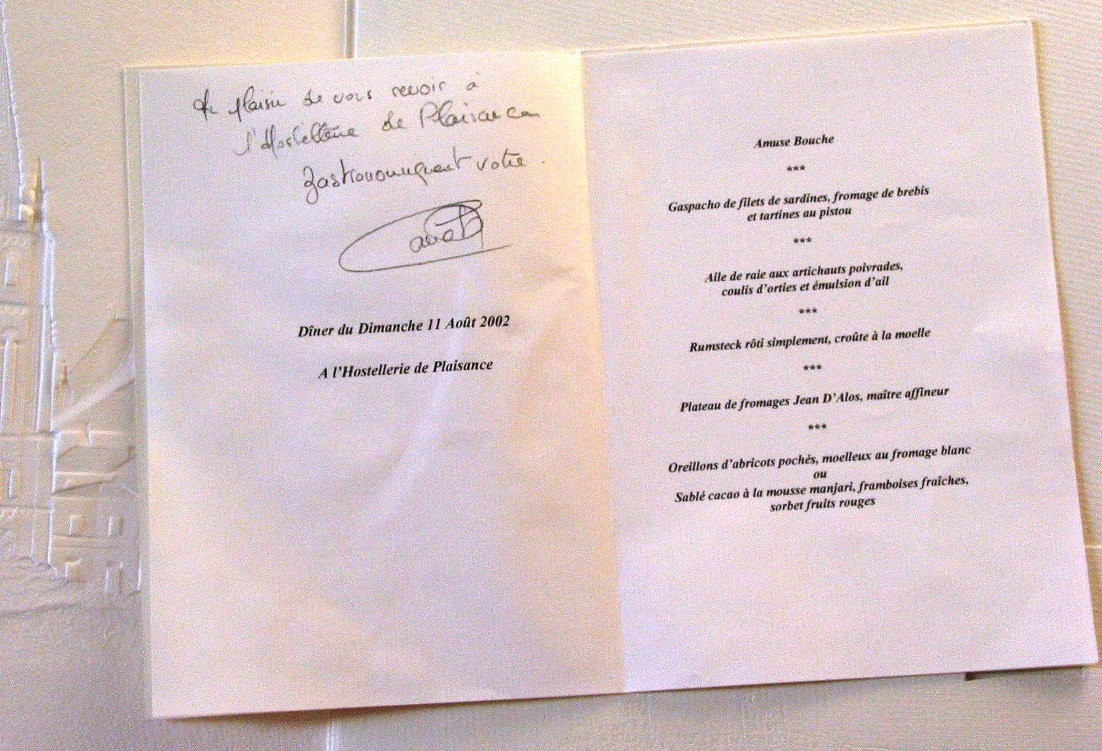 Le plaisir de vous revoir à
l'Hostellerie de Plaisance
gastronomiquement votre.
Dîner du Dimanche 11 Août 2002
A l'Hostellerie de Plaisance
Amuse Bouche
***
Gaspacho de filets de sardines, fromage de brebis
et tartines au pistou
***
Aile de raie aux artichauts poivrades,
coulis d'orties et émulsion d'ail
***
Rumsteck rôti simplement, croûte à la moelle
***
Plateau de fromages Jean D'Alos, maître affineur
***
Oreillons d'abricots pochés, moelleux au fromage blanc
ou
Sablé cacao à la mousse manjari, framboises fraîches,
sorbet fruits rouges